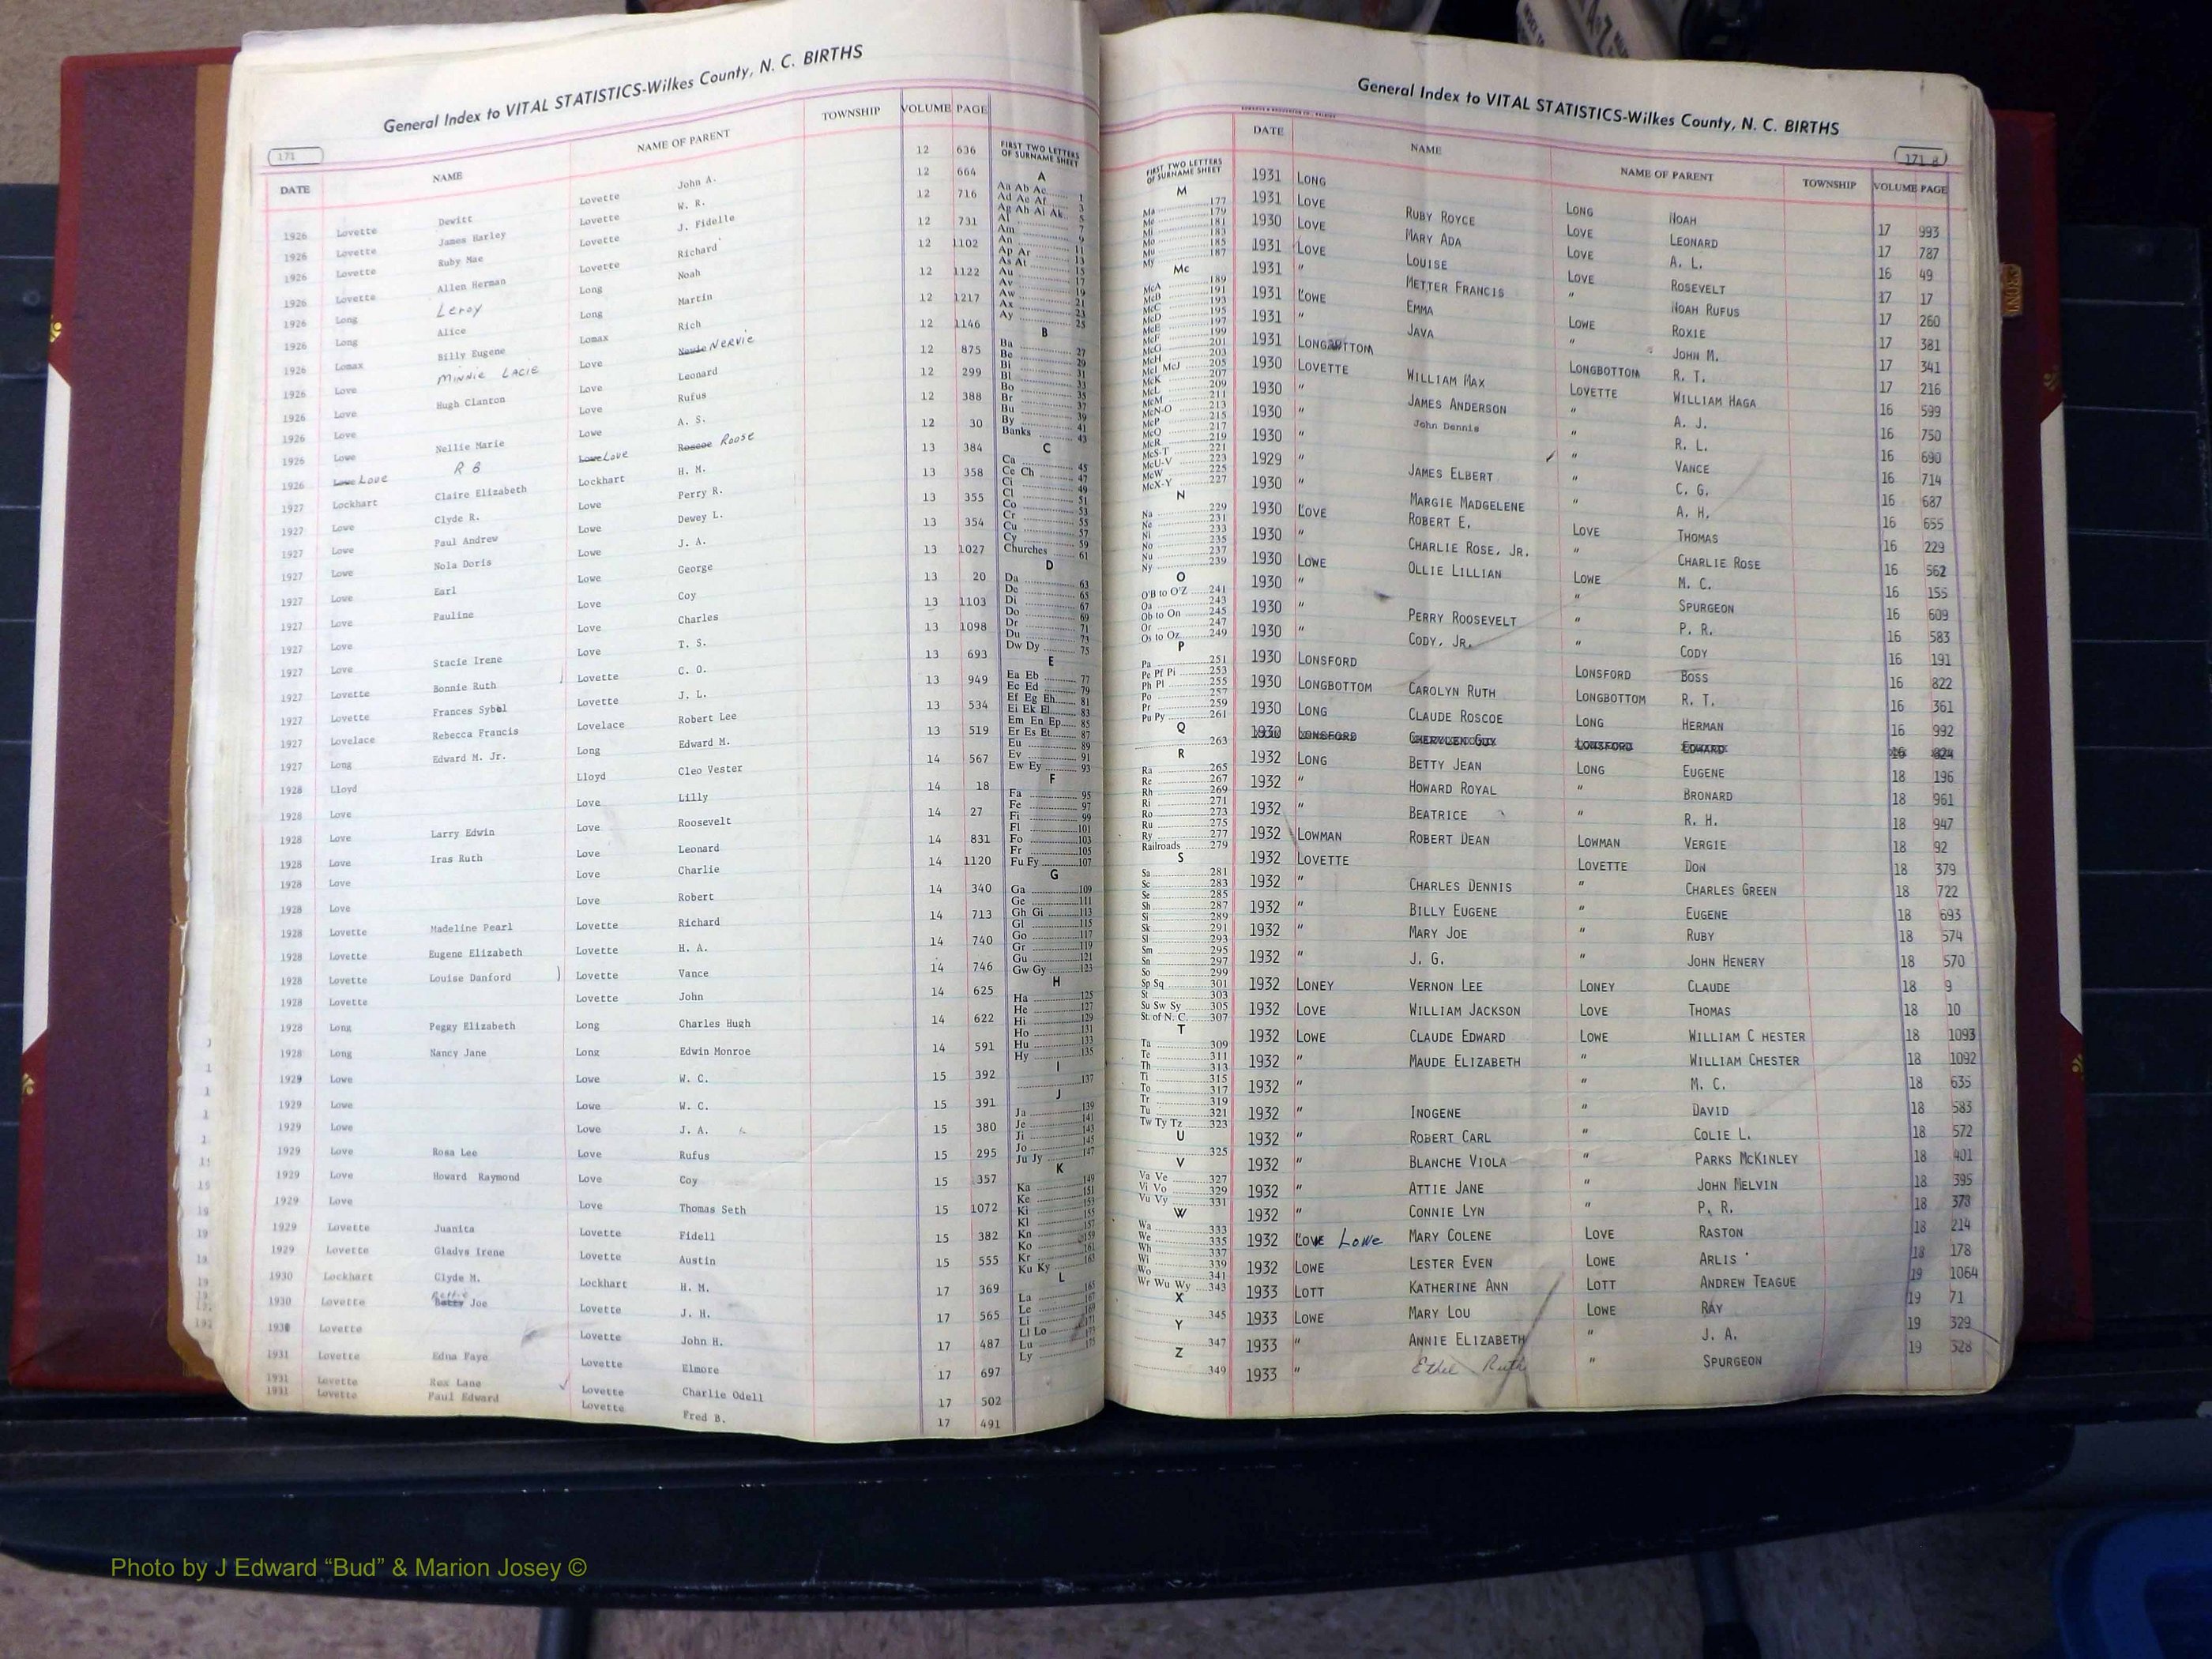 General Index to VITAL STATISTICS-Wilkes County, N. C. BIRTHS
171
DATE NAME NAME OF PARENT TOWNSHIP VOLUME PAGE
1926 Lovette Dewitt Lovette John A. 12 636
1926 Lovette James Harley Lovette W. R. 12 664
1926 Lovette Ruby Mae Lovette J. Fidelle 12 716
1926 Lovette Allen Herman Lovette Richard 12 731
1926 Long Leroy Long Noah 12 1102
1926 Long Alice Long Martin 12 1122
1926 Lomax Billy Eugene Lomax Rich 12 1217
1926 Love Minnie Lacie Love Nervie 12 1146
1926 Love Hugh Clanton Love Leonard 12 875
1926 Love Love Rufus 12 299
1926 Lowe Nellie Marie Lowe A. S. 12 388
1926 Love R B Love Roose 12 30
1927 Lockhart Claire Elizabeth Lockhart H. M. 13 384
1927 Lowe Clyde R. Lowe Perry R. 13 358
1927 Lowe Paul Andrew Lowe Dewey L. 13 355
1927 Lowe Nola Doris Lowe J. A. 13 354
1927 Lowe Earl Lowe George 13 1027
1927 Love Pauline Love Coy 13 20
1927 Love Charles 13 1103
1927 Love Stacie Irene Love T. S. 13 1098
1927 Lovette Bonnie Ruth Lovette C. O. 13 693
1927 Lovette Frances Sybol Lovette J. L. 13 949
1927 Lovelace Rebecca Francis Lovelace Robert Lee 13 534
1927 Long Edward M. Jr. Long Edward M. 13 519
1928 Lloyd Lloyd Cleo Vester 14 567
1928 Love Love Lilly 14 18
1928 Love Larry Edwin Love Roosevelt 14 27
1928 Love Iras Ruth Love Leonard 14 831
1928 Love Love Charlie 14 1120
1928 Love Love Robert 14 340
1928 Lovette Madeline Pearl Lovette Richard 14 713
1928 Lovette Eugene Elizabeth Lovette H. A. 14 740
1928 Lovette Louise Danford Lovette Vance 14 746
1928 Lovette Lovette John 14 625
1928 Long Peggy Elizabeth Long Charles Hugh 14 622
1928 Long Nancy Jane Long Edwin Monroe 14 591
1929 Lowe Lowe W. C. 15 392
1929 Lowe Lowe W. C. 15 391
1929 Lowe Lowe J. A. 15 380
1929 Love Rosa Lee Love Rufus 15 295
1929 Love Howard Raymond Love Coy 15 357
1929 Love Love Thomas Seth 15 1072
1929 Lovette Juanita Lovette Fidell 15 382
1929 Lovette Gladys Irene Lovette Austin 15 555
1930 Lockhart Clyde M. Lockhart H. M. 17 369
1930 Lovette Betty Joe Lovette J. H. 17 565
1930 Lovette Lovette John H. 17 487
1931 Lovette Edna Faye Lovette Elmore 17 697
1931 Lovette Rex Lane Lovette Charlie Odell 17 502
1931 Lovette Paul Edward Lovette Fred B. 17 491
FIRST TWO LETTERS
OF SURNAME SHEET
A
Aa Ab Ac 1
Ad Ae Af 3
Ag Ah Ai Ak 5
Al 7
Am 9
An 11
Ap Ar 13
As At 15
Au 17
Av 19
Aw 21
Ax 23
Ay 25
B
Ba 27
Be 29
Bi 31
Bl 33
Bo 35
Br 37
Bu 39
By 41
Banks 43
C
Ca 45
Ce Ch 47
Ci 49
Cl 51
Co 53
Cr 55
Cu 57
Cy 59
Churches 61
D
Da 63
De 65
Di 67
Do 69
Dr 71
Du 73
Dw Dy 75
E
Ea Eb 77
Ec Ed 79
Ef Eg Eh 81
Ei Ek El 83
Em En Ep 85
Er Es Et 87
Eu 89
Ev 91
Ew Ey 93
F
Fa 95
Fe 97
Fi 99
Fl 101
Fo 103
Fr 105
Fu Fy 107
G
Ga 109
Ge 111
Gh Gi 113
Gl 115
Go 117
Gr 119
Gu 121
Gw Gy 123
H
Ha 125
He 127
Hi 129
Ho 131
Hu 133
Hy 135
I
137
J
Ja 139
Je 141
Ji 143
Jo 145
Ju Jy 147
K
Ka 149
Ke 151
Ki 153
Kl 155
Kn 157
Ko 159
Kr 161
Ku Ky 163
L
La 165
Le 167
Li 169
Ll Lo 171
Lu 173
Ly 175
General Index to VITAL STATISTICS-Wilkes County, N. C. BIRTHS
171 a
FIRST TWO LETTERS
OF SURNAME SHEET
M
Ma 177
Me 179
Mi 181
Mo 183
Mu 185
My 187
Mc
McA 189
McB 191
McC 193
McD 195
McE 197
McF 199
McG 201
McH 203
McI McJ 205
McK 207
McL 209
McM 211
McN-O 213
McP 215
McQ 217
McR 219
McS-T 221
McU-V 223
McW 225
McX-Y 227
N
Na 229
Ne 231
Ni 233
No 235
Nu 237
Ny 239
O
O'B to O'Z 241
Oa 243
Ob to On 245
Or 247
Os to Oz 249
P
Pa 251
Pe Pf Pi 253
Ph Pl 255
Po 257
Pr 259
Pu Py 261
Q
263
R
Ra 265
Re 267
Rh 269
Ri 271
Ro 273
Ru 275
Ry 277
Railroads 279
S
Sa 281
Sc 283
Se 285
Sh 287
Si 289
Sk 291
Sl 293
Sm 295
Sn 297
So 299
Sp Sq 301
St 303
Su Sw Sy 305
St. of N. C. 307
T
Ta 309
Te 311
Th 313
Ti 315
To 317
Tr 319
Tu 321
Tw Ty Tz 323
U
325
V
Va Ve 327
Vi Vo 329
Vu Vy 331
W
Wa 333
We 335
Wh 337
Wi 339
Wo 341
Wr Wu Wy 343
X
345
Y
347
Z
349
DATE NAME NAME OF PARENT TOWNSHIP VOLUME PAGE
1931 LONG RUBY ROYCE LONG NOAH 17 993
1931 LOVE MARY ADA LOVE LEONARD 17 787
1930 LOVE LOUISE LOVE A. L. 16 49
1931 LOVE METTER FRANCIS LOVE ROSEVELT 17 17
1931 " EMMA " NOAH RUFUS 17 260
1931 LOWE JAVA LOWE ROXIE 17 381
1931 " " JOHN M. 17 341
1931 LONGBOTTOM WILLIAM MAX LONGBOTTOM R. T. 17 216
1930 LOVETTE JAMES ANDERSON LOVETTE WILLIAM HAGA 16 599
1930 " John Dennis " A. J. 16 750
1930 " " R. L. 16 690
1930 " JAMES ELBERT " VANCE 16 714
1929 " MARGIE MADGELENE " C. G. 16 687
1930 " ROBERT E. " A. H. 16 655
1930 LOVE CHARLIE ROSE, JR. LOVE THOMAS 16 229
1930 " OLLIE LILLIAN " CHARLIE ROSE 16 562
1930 LOWE LOWE M. C. 16 155
1930 " PERRY ROOSEVELT " SPURGEON 16 609
1930 " CODY, JR. " P. R. 16 583
1930 " " CODY 16 191
1930 LONSFORD CAROLYN RUTH LONSFORD BOSS 16 822
1930 LONGBOTTOM CLAUDE ROSCOE LONGBOTTOM R. T. 16 361
1930 LONG LONG HERMAN 16 992
1930 LONSFORD LONSFORD EDWARD 16 824
1932 LONG BETTY JEAN LONG EUGENE 18 196
1932 " HOWARD ROYAL " BRONARD 18 961
1932 " BEATRICE " R. H. 18 947
1932 LOWMAN ROBERT DEAN LOWMAN VERGIE 18 92
1932 LOVETTE LOVETTE DON 18 379
1932 " CHARLES DENNIS " CHARLES GREEN 18 722
1932 " BILLY EUGENE " EUGENE 18 693
1932 " MARY JOE " RUBY 18 574
1932 " J. G. " JOHN HENERY 18 570
1932 LONEY VERNON LEE LONEY CLAUDE 18 9
1932 LOVE WILLIAM JACKSON LOVE THOMAS 18 10
1932 LOWE CLAUDE EDWARD LOWE WILLIAM C HESTER 18 1093
1932 " MAUDE ELIZABETH " WILLIAM CHESTER 18 1092
1932 " M. C. 18 635
1932 " INOGENE " DAVID 18 583
1932 " ROBERT CARL " COLIE L. 18 572
1932 " BLANCHE VIOLA " PARKS MCKINLEY 18 401
1932 " ATTIE JANE " JOHN MELVIN 18 395
1932 " CONNIE LYN " P. R. 18 373
1932 LOVE Lowe MARY COLENE LOVE RASTON 18 214
1932 LOWE LESTER EVEN LOWE ARLIS 18 178
1933 LOTT KATHERINE ANN LOTT ANDREW TEAGUE 19 1064
1933 LOWE MARY LOU LOWE RAY 19 71
1933 " ANNIE ELIZABETH " J. A. 19 329
1933 " Ethel Ruth " SPURGEON 19 328
Photo by J Edward “Bud” & Marion Josey ©